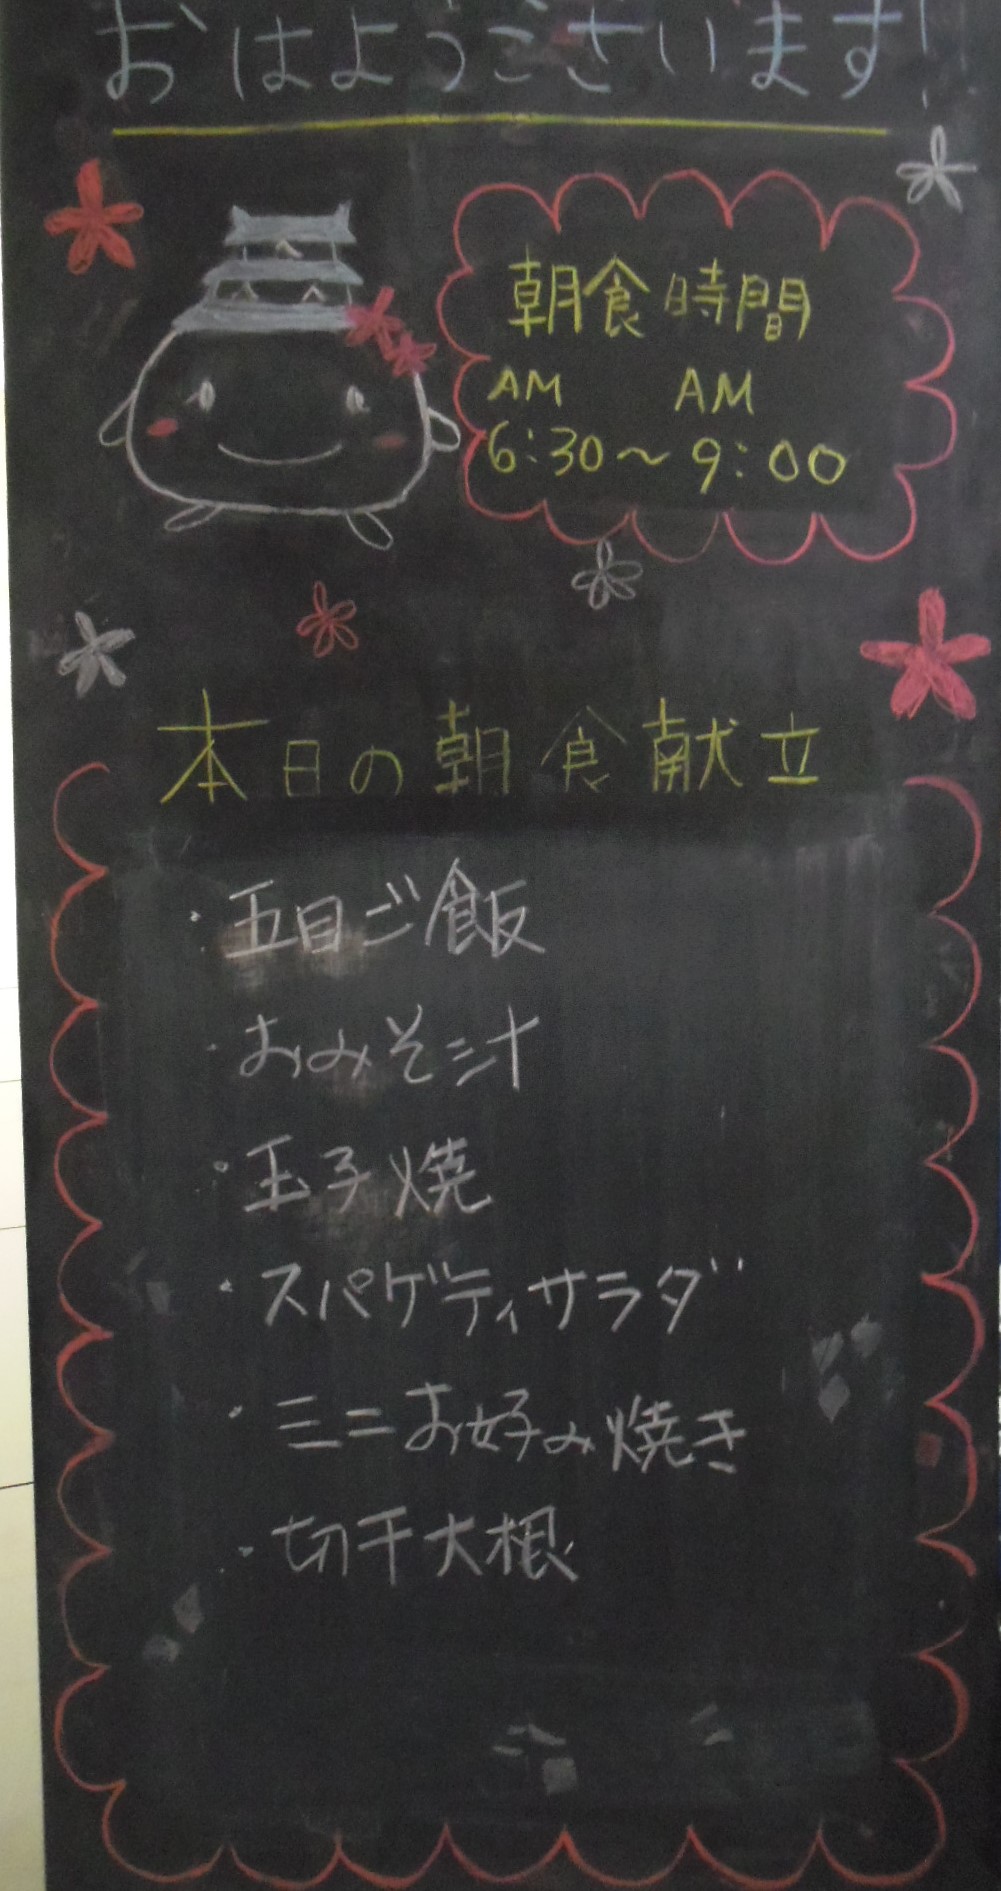 おはようございます!
朝食時間
AM AM
6:30～9:00
本日の朝食献立
・五目ご飯
・おみそ汁
・玉子焼
・スパゲティサラダ
・ミニお好み焼き
・切干大根